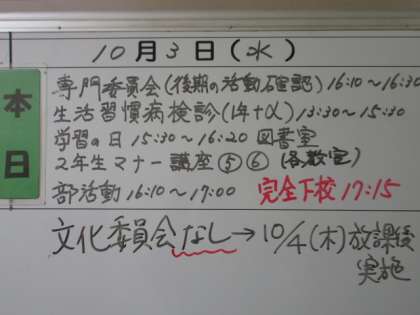 10月3日(水)
本日
専門委員会(後期の活動確認) 16:10〜16:30
生活習慣病検診(1年+α) 13:30〜15:30
学習の日 15:30〜16:20 図書室
2年生マナー講座⑤⑥(各教室)
部活動 16:10〜17:00 完全下校17:15
文化委員会なし→10/4(木)放課後
実施